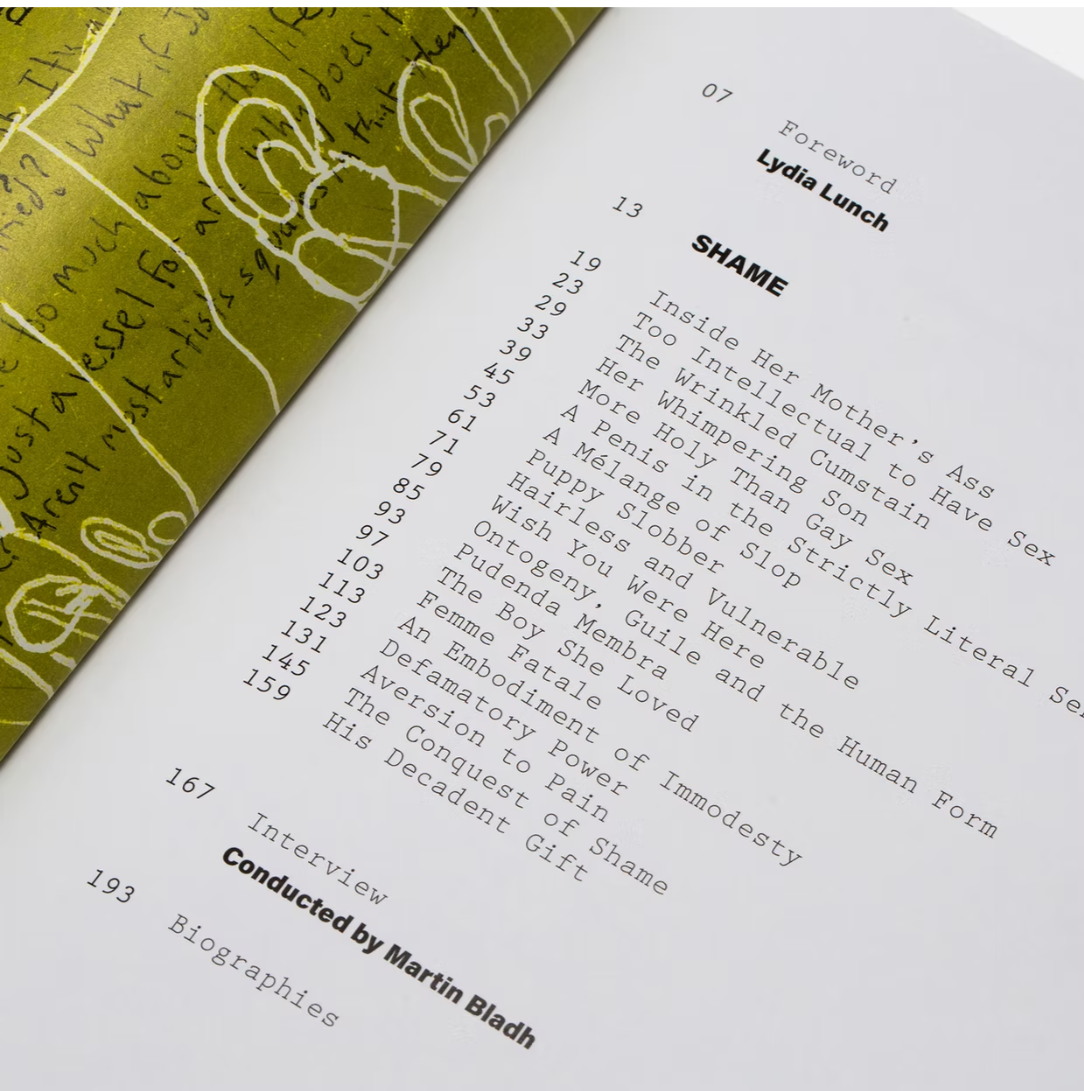 It's
? What if
too much about the
Just a vessel for art? why does it
Aren't most artists squares? think they
07 Foreword
Lydia Lunch
13 SHAME
19 Inside Her Mother's Ass
23 Too Intellectual to Have Sex
29 The Wrinkled Cumstain
33 Her Whimpering Son
39 More Holy Than Gay Sex
45 A Penis in the Strictly Literal
53 A Mélange of Slop
61 Puppy Slobber
71 Hairless and Vulnerable
79 Wish You Were Here
85 Ontogeny, Guile and the Human Form
93 Pudenda Membra
97 The Boy She Loved
103 Femme Fatale
113 An Embodiment of Immodesty
123 Defamatory Power
131 Aversion to Pain
145 The Conquest of Shame
159 His Decadent Gift
167 Interview
Conducted by Martin Bladh
193 Biographies